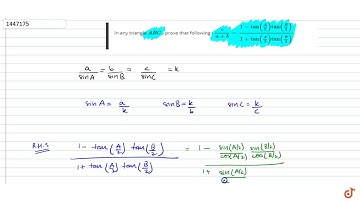 1447175
In any triangle ABC, prove that following : c/(a + b) = (1 − tan(A/2) tan(B/2))/(1 + tan(A/2) tan(B/2))
a/sin A = b/sin B = c/sin C = k
sin A = a/k sin B = k/b sin C = k/c
R.H.S
(1 − tan(A/2) tan(B/2))/(1 + tan(A/2) tan(B/2)) = (1 − sin(A/2)/cos(A/2) sin(B/2)/cos(B/2))/(1 + sin(A/2)/